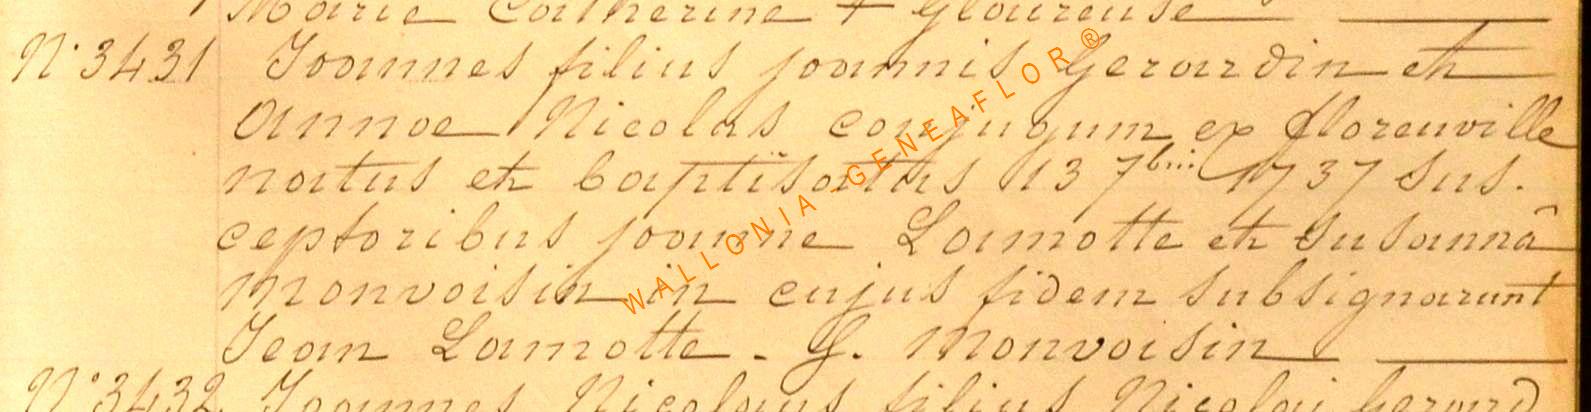 Marie Catherine + Gloureuse
N° 3431 Joannes filius joannis Gerardin et
annoe Nicolas conjugum ex florenville
natus et baptisatus 13 7bris 1737 sus.
ceptoribus joanne Lamotte et susannâ
Monvoisin in cujus fidem subsignarunt
Jean Lamotte - G. Monvoisin
N° 3432 Joannes Nicolaus filius Nicolai Gerard
WALLONIA-GENEAFLOR®